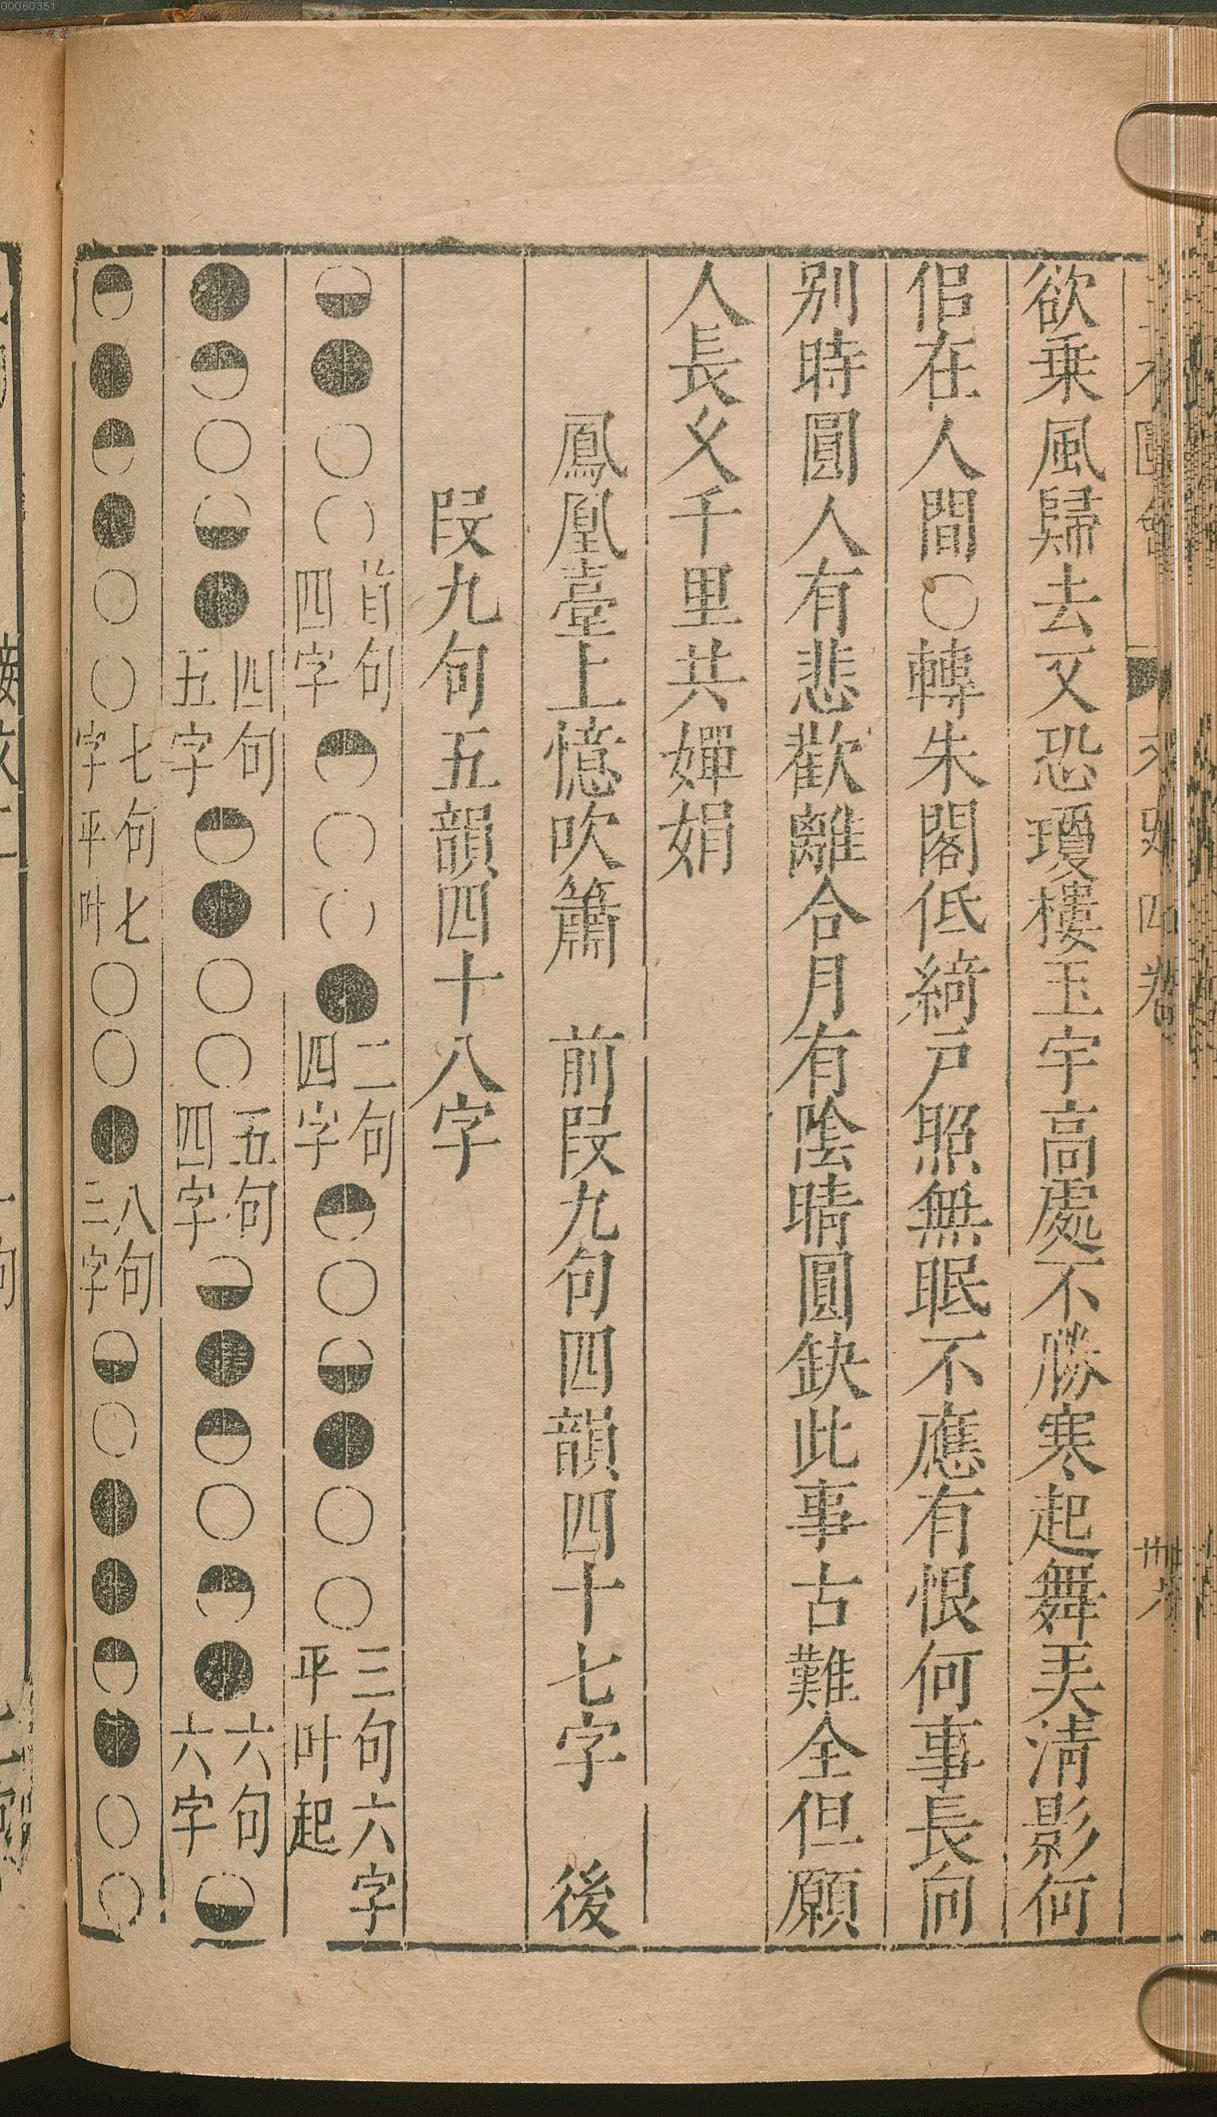 欲乗風歸去又恐瓊樓玉宇高處不勝寒起舞美清影何
佀在人間○轉朱閣低綺戸照無眠不應有恨何事長向
别時圓人有悲歡離合月有陰晴圓缺此事古難全但願
人長乆千里共嬋娟
鳳凰臺上憶吹簫 前段九句四韻四十七字 後
段九句五韻四十八字
◒●○○首句四字◓○○●二句四字◓○◒●○○三句六字平叶起
●◓○◒●四句五字◓●○○五句四字◒●◓○◓●六句六字◒
◓●◓●○○七句七字平叶○○●八句三字◒○●●◓●○○
00060351